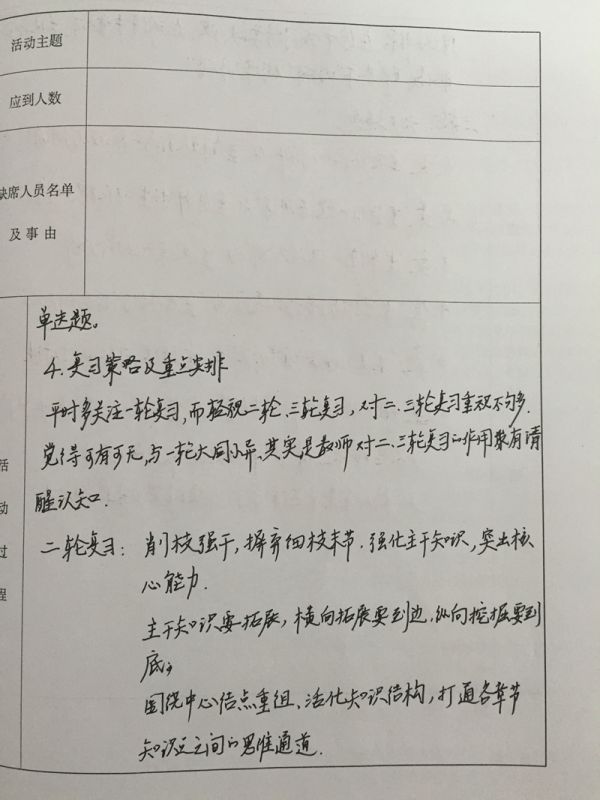 活动主题
应到人数
缺席人员名单
及事由
活
动
过
程
单选题。
4.复习策略及重点安排
平时多关注一轮复习,而轻视二轮、三轮复习,对二、三轮复习重视不够多.
觉得可有可无,与一轮大同小异、其实是教师对二、三轮复习的作用没有清
醒认知.
二轮复习: 削枝强干,摒弃细枝末节.强化主干知识,突出核
心能力.
主干知识要拓展,横向拓展要到边,纵向挖掘要到
底;
围绕中心结点重组、活化知识结构,打通各章节
知识之间的思维通道.